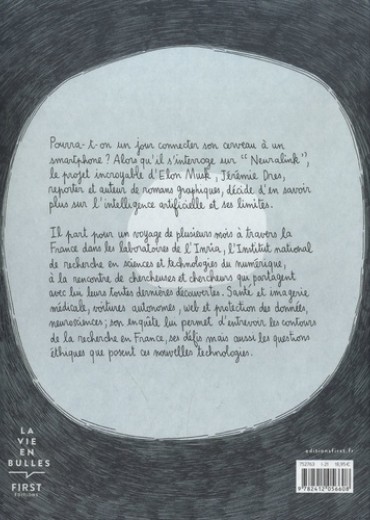 Pourra-t-on un jour connecter son cerveau à un
smartphone ? Alors qu'il s'interroge sur "Neuralink",
le projet incroyable d'Elon Musk, Jérémie Dres,
reporter et auteur de romans graphiques, décide d'en savoir
plus sur l'intelligence artificielle et ses limites.
Il part pour un voyage de plusieurs mois à travers la
France dans les laboratoires de l'Inria, l'Institut national
de recherche en sciences et technologies du numérique,
à la rencontre de chercheuses et chercheurs qui partagent
avec lui leurs toutes dernières découvertes. Santé et imagerie
médicale, voitures autonomes, web et protection des données,
neurosciences ; son enquête lui permet d'entrevoir les contours
de la recherche en France, ses défis mais aussi les questions
éthiques que posent ces nouvelles technologies.
LA
VIE EN
BULLES
FIRST
ÉDITIONS
editionsfirst.fr
9 782412 056608